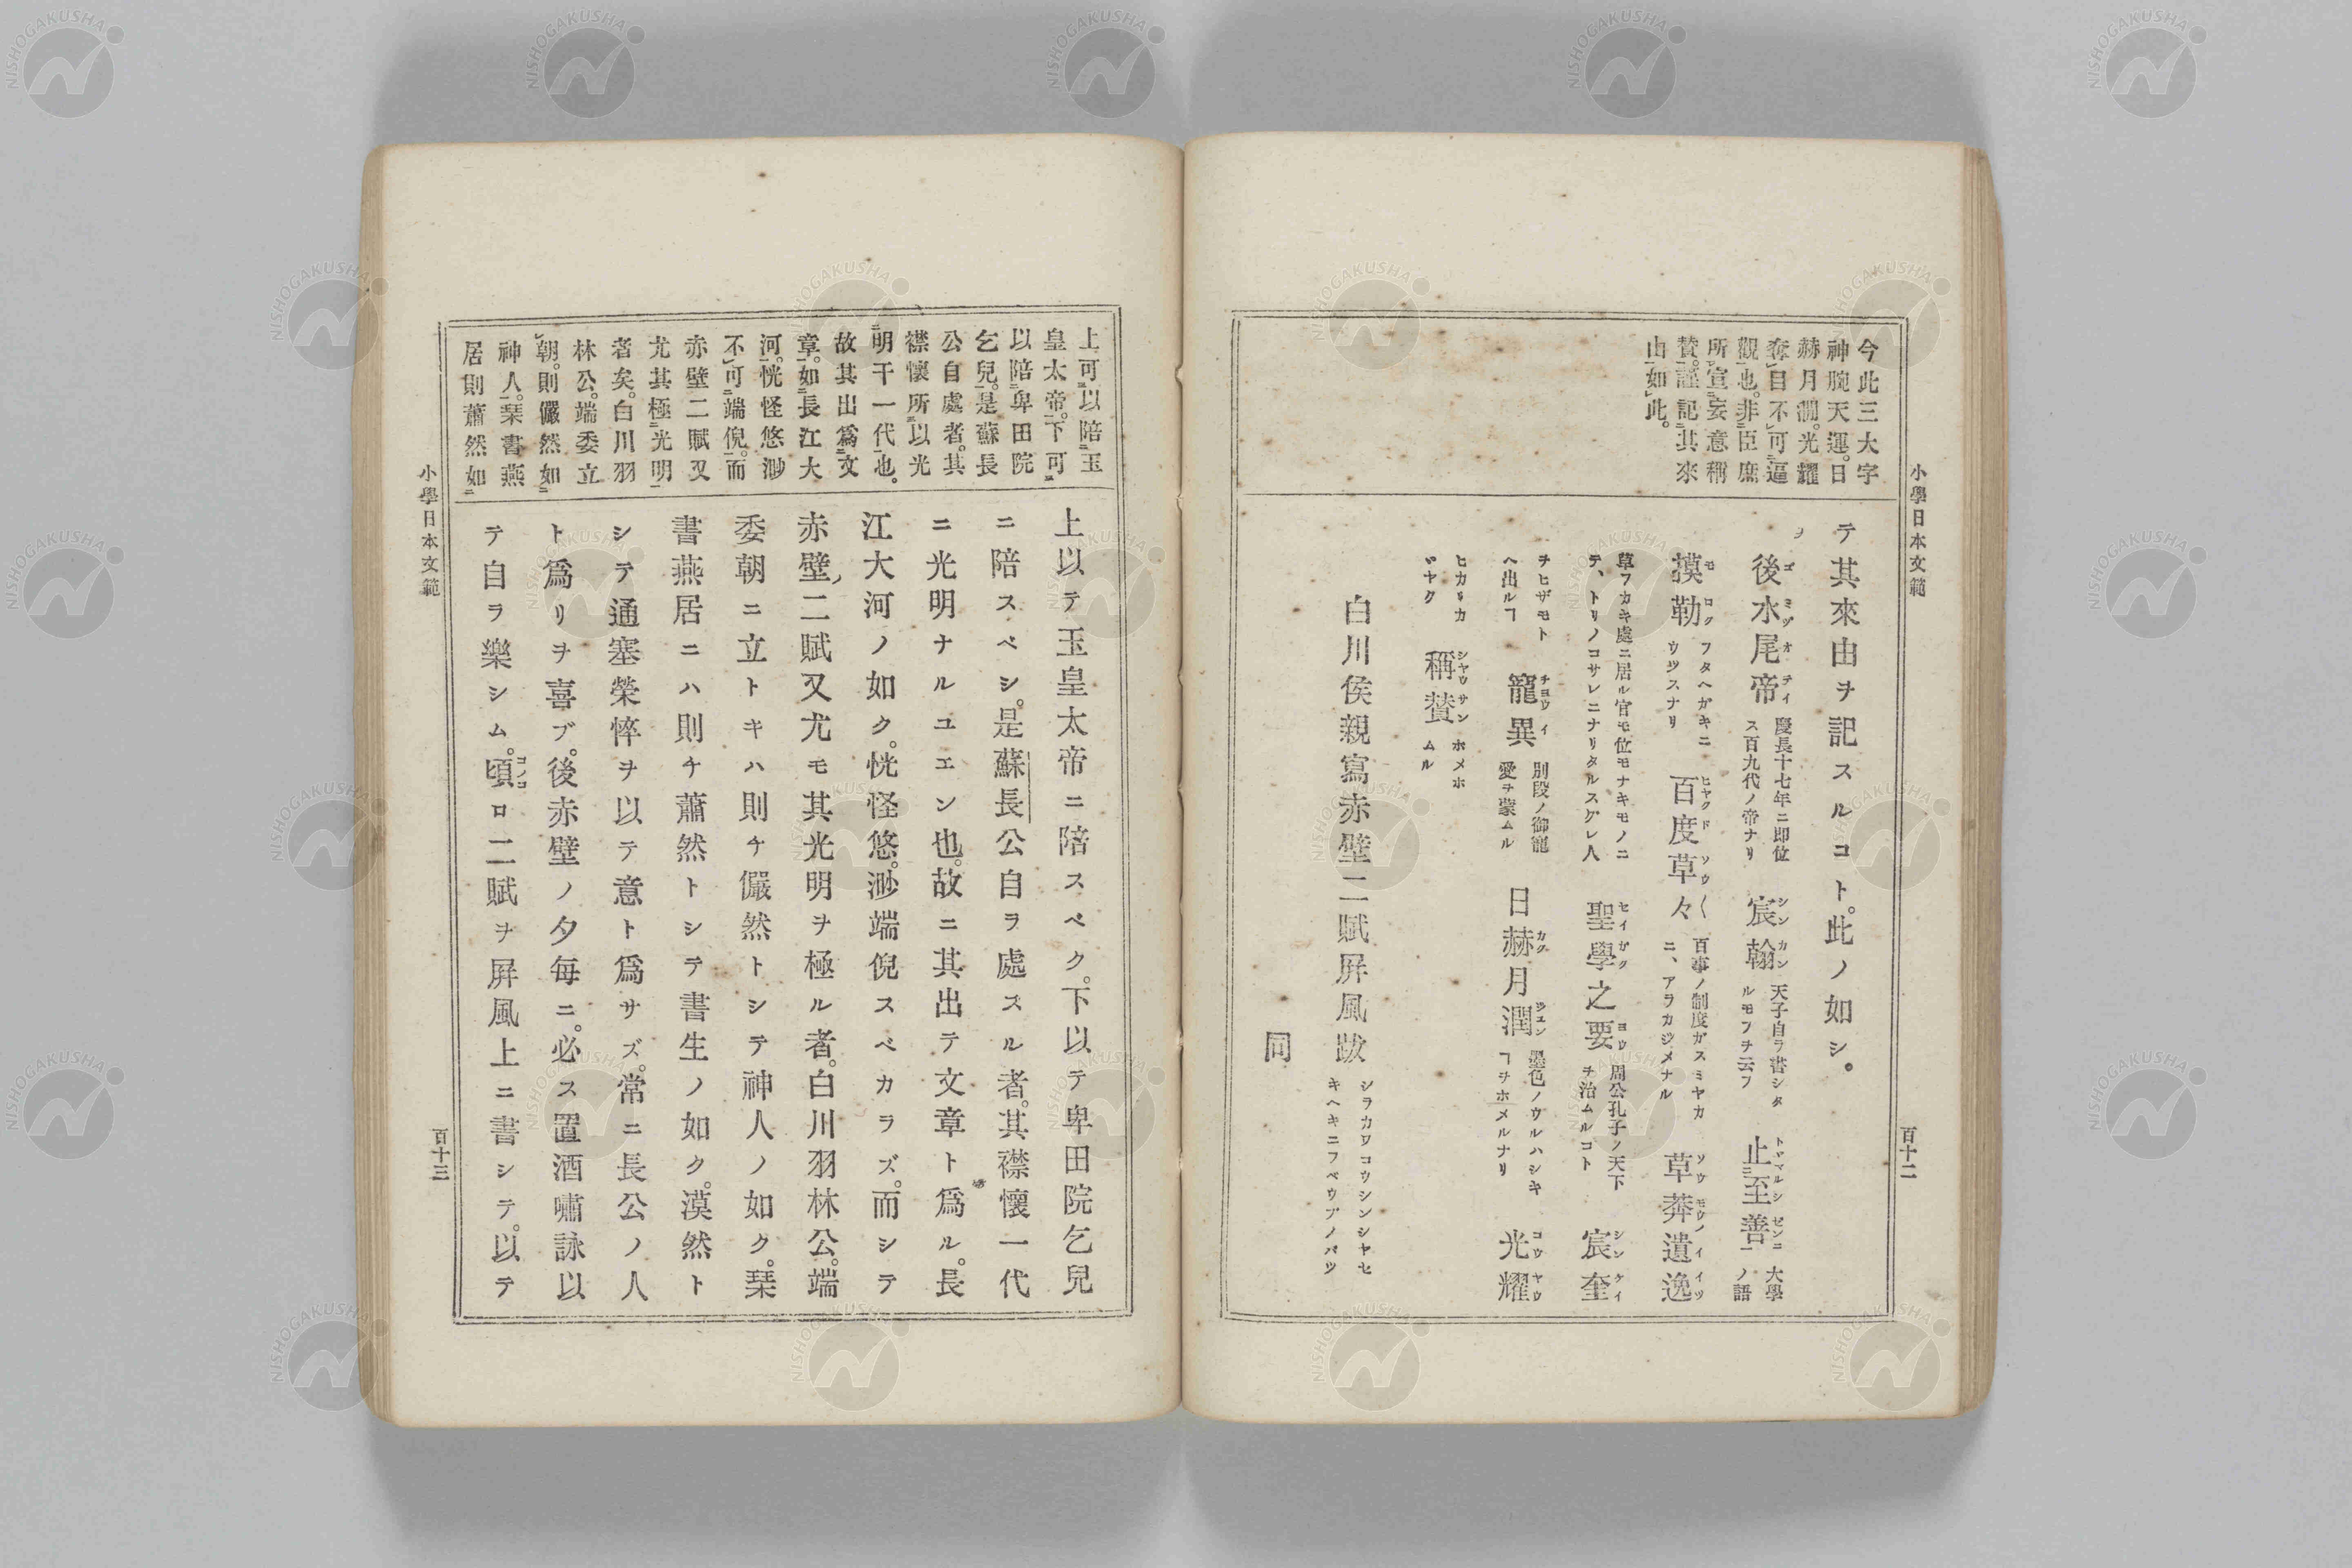 小學日本文範
百十二
今此三大字
神腕天運。日
赫月潤。光耀
奪目不可逼
觀也。非臣庶
所宣妄意稱
賛。謹記其來
由如此。
テ其來由ヲ記スルコト。此ノ如シ。
後水尾帝 慶長十七年ニ即位ス百九代ノ帝ナリ 宸翰 天子自ラ書シタルモノヲ云フ 止至善 大學ノ語
摸勒 フタヘガキニウツスナリ 百度草々 百事ノ制度ガスミヤカニ、アラカジメナル 草莽遺逸
草フカキ處ニ居ル官モ位モナキモノニテ、トリノコサレニナリタルスグレ人 聖學之要 周公孔子ノ天下ヲ治ムルコト 宸奎
ヲヒザモトヘ出ルヿ 寵異 別段ノ御寵愛ヲ蒙ムル 日赫月潤 墨色ノウルハシキヿヲホメルナリ 光耀
ヒカリカヾヤク 稱賛 ホメホムル
白川侯親寫赤壁二賦屏風跋 シラカワコウシンシヤセキヘキニフベウブノバツ
同
上可以陪玉
皇太帝。下可
以陪卑田院
乞兒。是蘇長
公自處者。其
襟懷所以光
明干一代也。
故其出爲文
章。如長江大
河。恍怪悠渺
不可端倪。而
赤壁二賦又
尤其極光明
者矣。白川羽
林公。端委立
朝。則儼然如
神人。琹書燕
居則蕭然如
上以テ玉皇太帝ニ陪スベク。下以テ卑田院乞兒
ニ陪スベシ。是蘇長公自ラ處スル者。其襟懷一代
ニ光明ナルユエン也。故ニ其出テ文章ト爲ル。長
江大河ノ如ク。恍怪悠。渺端倪スベカラズ。而シテ
赤壁二賦又尤モ其光明ヲ極ル者。白川羽林公。端
委朝ニ立トキハ則チ儼然トシテ神人ノ如ク。琹
書燕居ニハ則チ蕭然トシテ書生ノ如ク。漠然ト
シテ通塞榮悴ヲ以テ意ト爲サズ。常ニ長公ノ人
ト爲リヲ喜ブ。後赤壁ノ夕毎ニ。必ス置酒嘯詠以
テ自ラ樂シム。頃ロ二賦ヲ屏風上ニ書シテ。以テ
小學日本文範
百十三